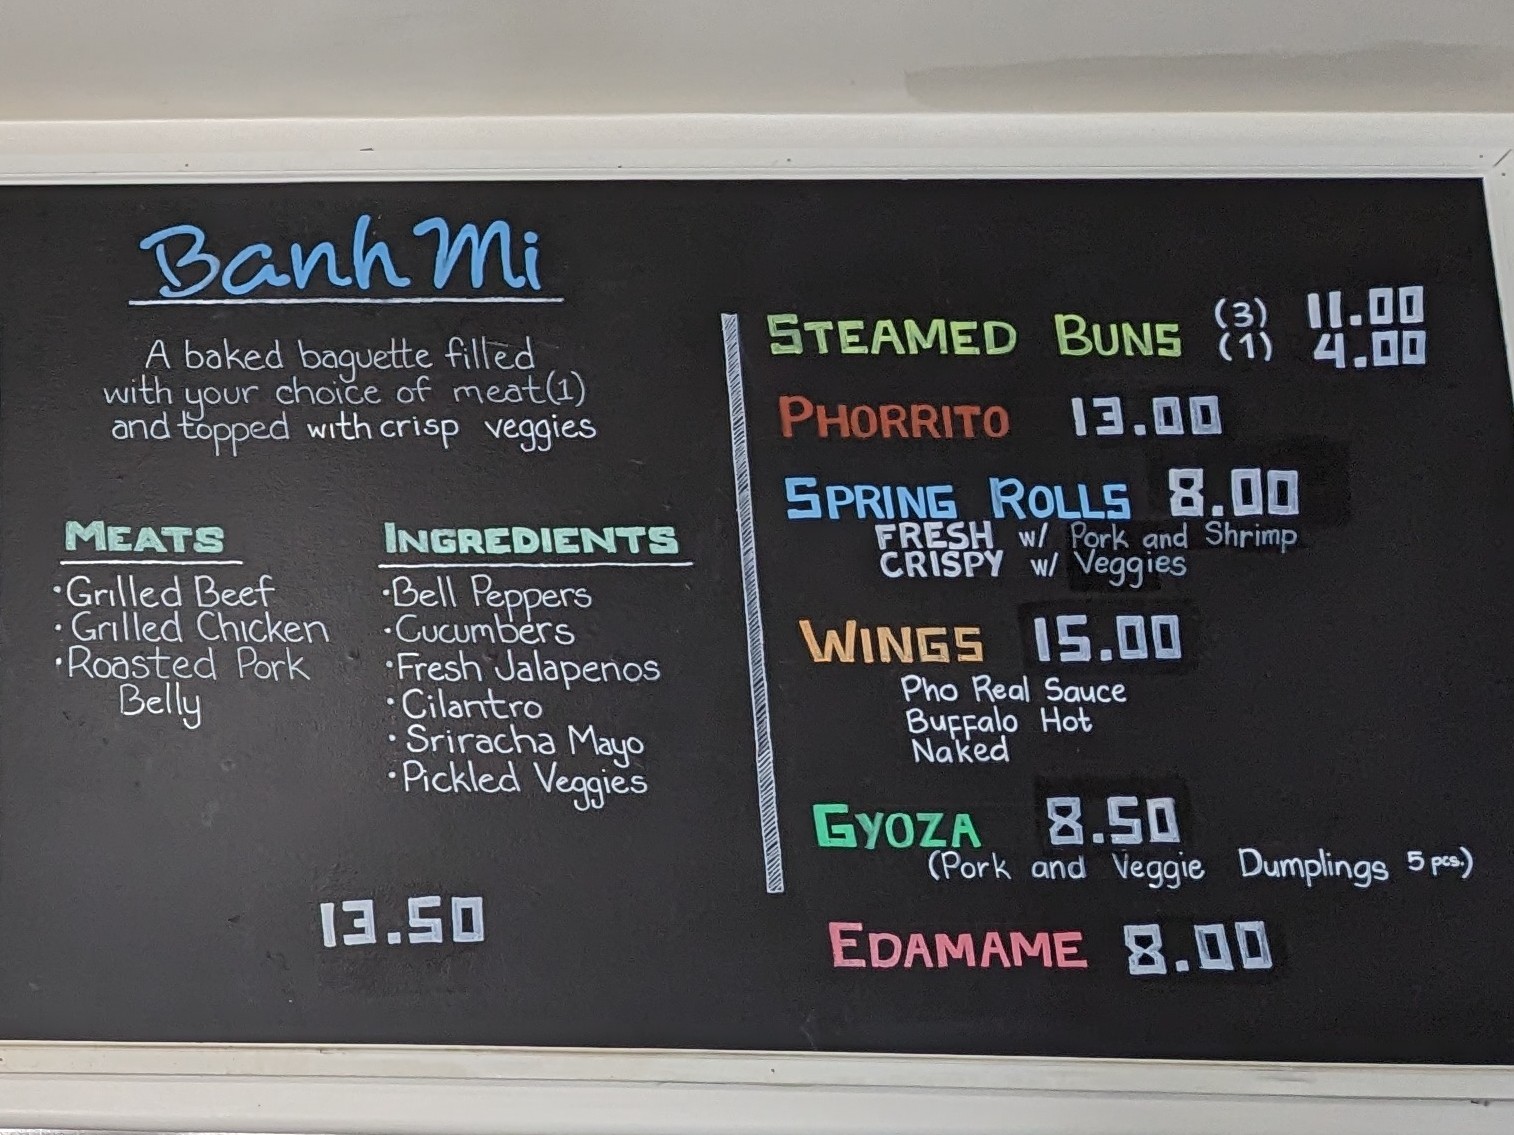 Banh Mi
A baked baguette filled
with your choice of meat(1)
and topped with crisp veggies
MEATS
·Grilled Beef
·Grilled Chicken
·Roasted Pork
Belly
INGREDIENTS
·Bell Peppers
·Cucumbers
·Fresh Jalapenos
·Cilantro
·Sriracha Mayo
·Pickled Veggies
13.50
STEAMED BUNS (3) 11.00
(1) 4.00
PHORRITO 13.00
SPRING ROLLS 8.00
FRESH w/ Pork and Shrimp
CRISPY w/ Veggies
WINGS 15.00
Pho Real Sauce
Buffalo Hot
Naked
GYOZA 8.50
(Pork and Veggie Dumplings 5 pcs.)
EDAMAME 8.00